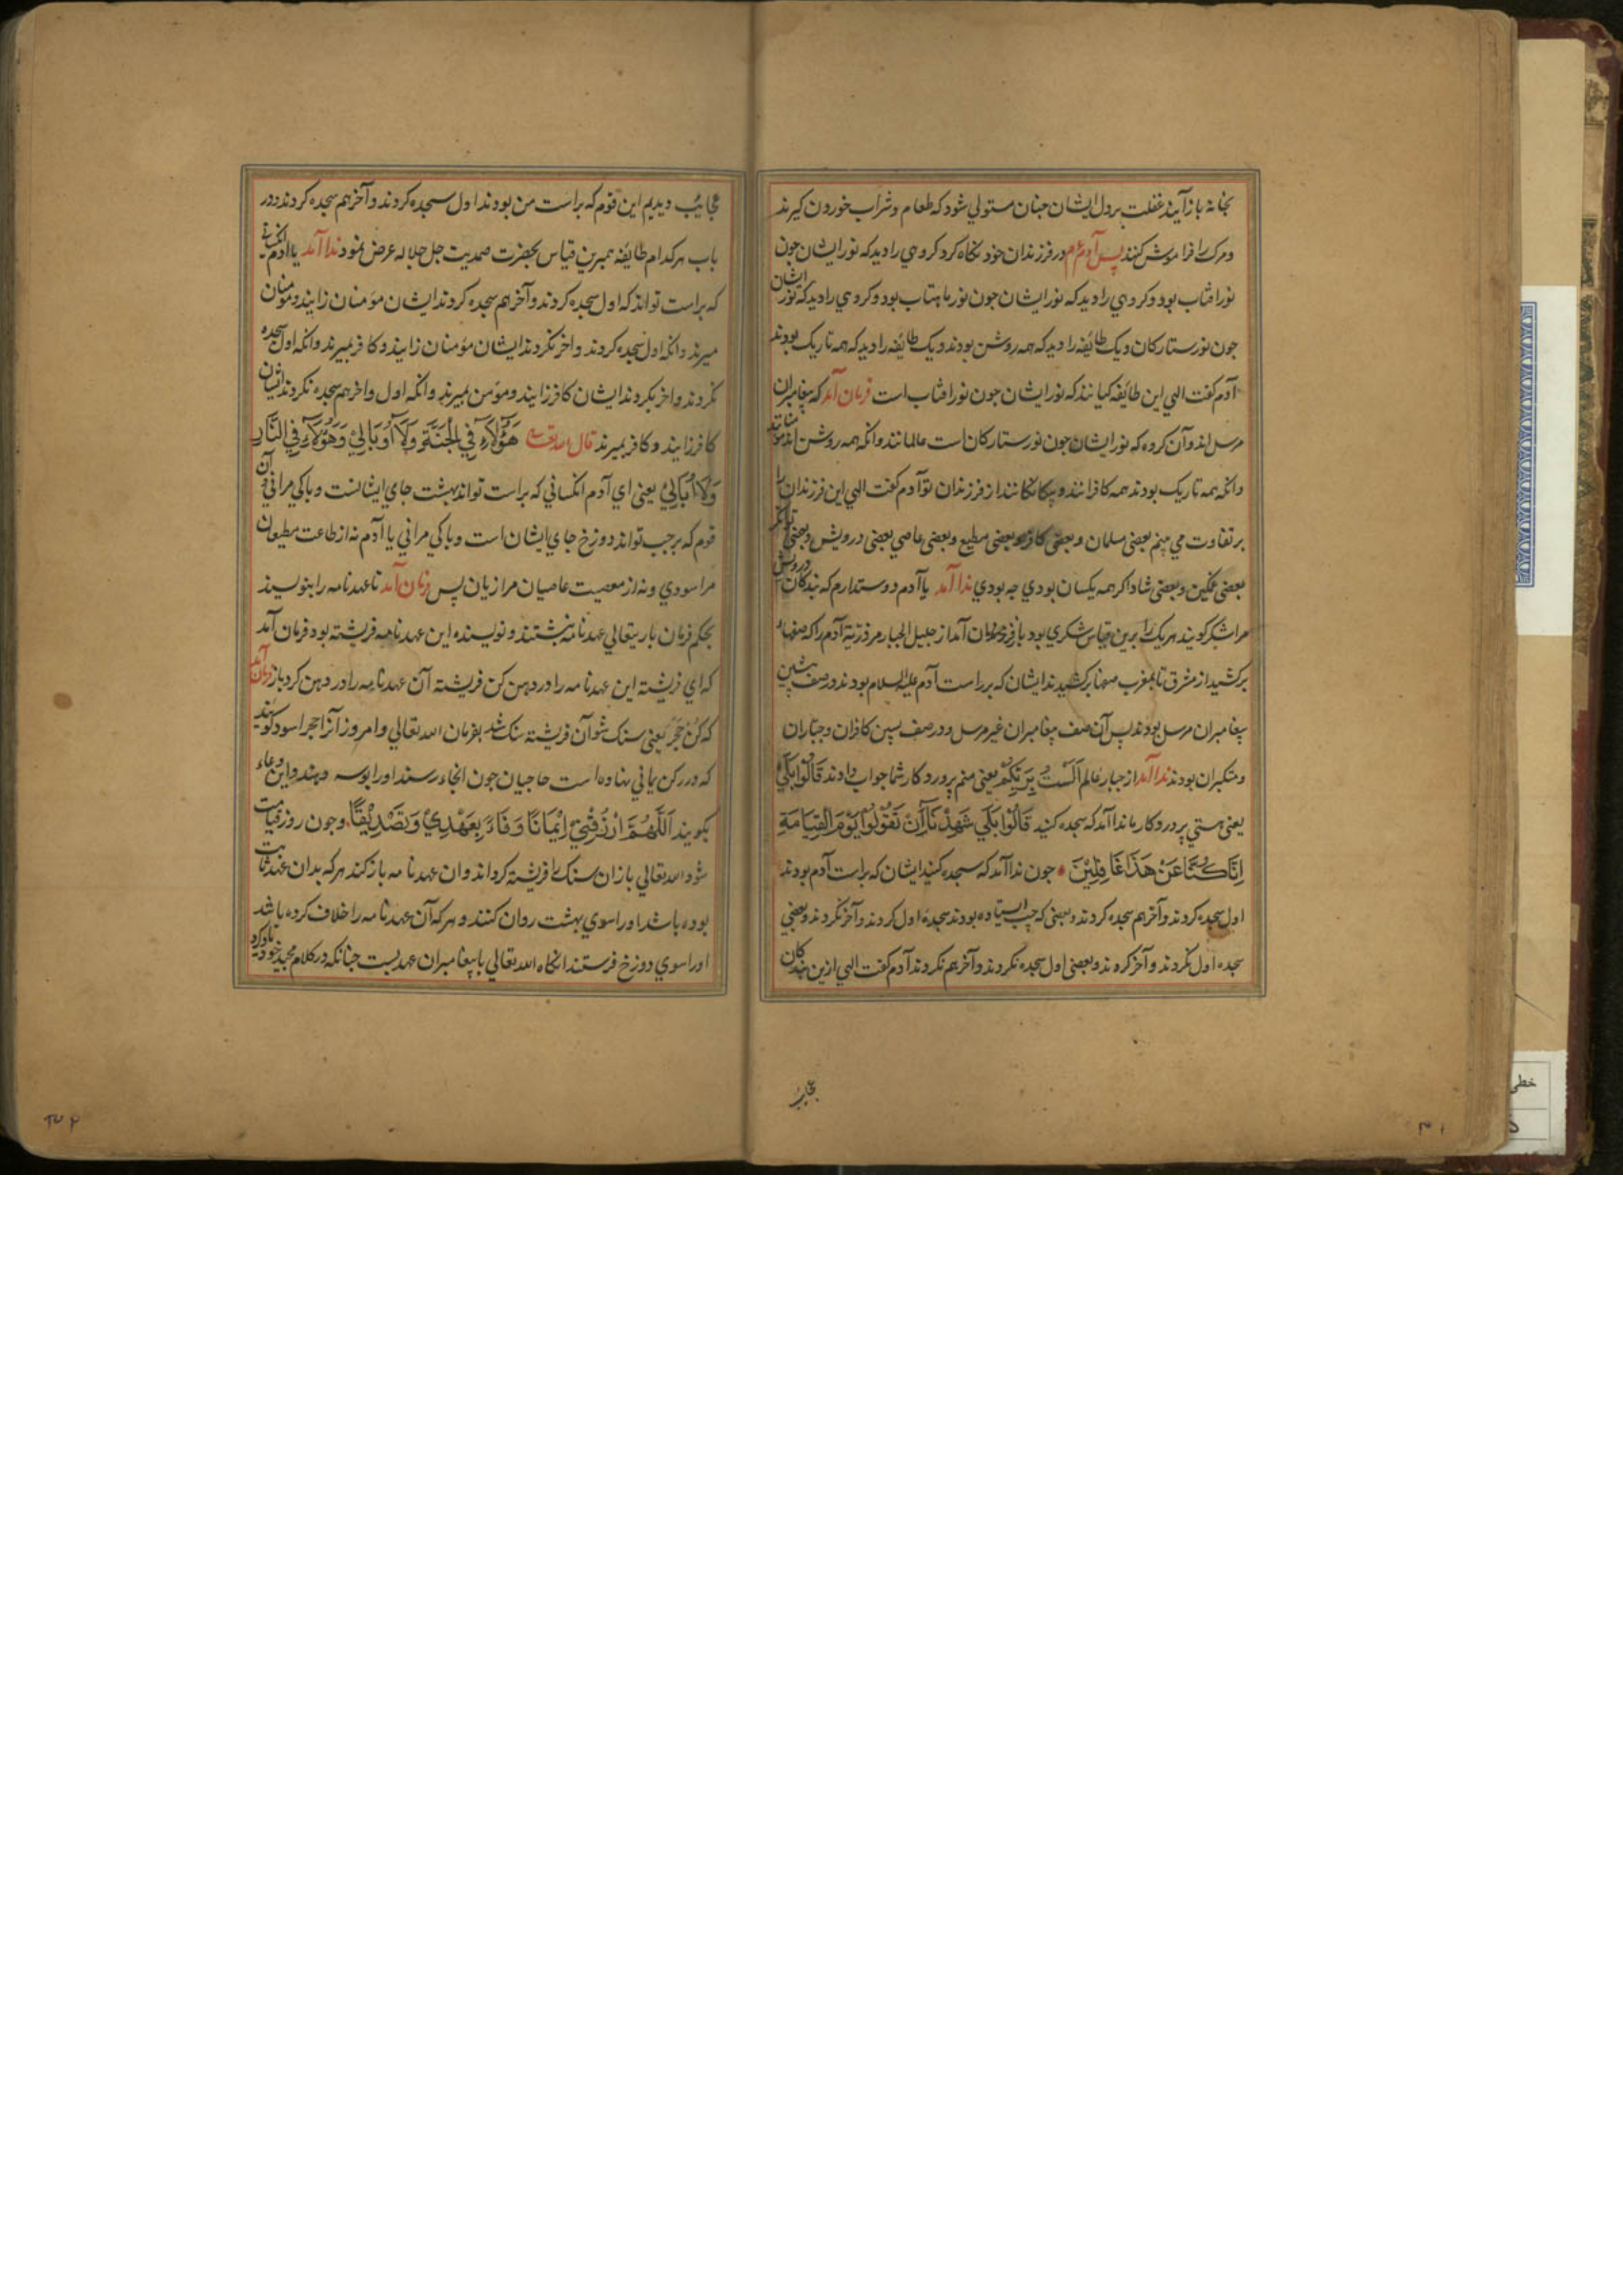 بخانه بازآیند غفلت بر دل ایشان جنان مستولی شود که طعام و شراب خوردن کیرند
و مرک را فراموش کنند پس آدم ع م در فرزندان خود نکاه کرد کروهی را دید که نور ایشان جون
نور افتاب بود و کروهی را دید که نور ایشان جون نور ماهتاب بود و کروهی را دید که نور ایشان
جون نور ستارکان و یک طائفه را دید که همه روشن بودند و یک طائفه را دید که همه تاریک بودند
آدم کفت الهی این طائفه کیانند که نور ایشان جون نور افتاب است فرمان آمد که پیغامبران
مرسل اند و آن کروه که نور ایشان جون نور ستارکان است عالمانند و انکه همه روشن اند مومنانند
و انکه همه تاریک بودند همه کافرانند و بیکانکانند از فرزندان تو آدم کفت الهی این فرزندان را
بر تفاوت می بینم بعضی مسلمان و بعضی کافر و بعضی مطیع و بعضی عاصی بعضی درویش و بعضی توانکر
بعضی غمکین و بعضی شاد اکر همه یکسان بودی جه بودی ندا آمد یا آدم دوستدارم که بندکان
مرا شکر کویند هر یک را برین قیاس شکری بود باز فرمان آمد از جلیل الجبار مر ذریة آدم را که صفها
برکشید از مشرق تا بمغرب صفها برکشیدند ایشان که بر راست آدم علیه السلام بودند در صف پیشین
پیغامبران مرسل بودند پس آن صف پیغامبران غیر مرسل و در صف پسین کافران و جباران
و متکبران بودند ندا آمد از جبار عالم اَلَسْتُ بِرَبِّكُمْ یعنی منم پروردکار شما جواب دادند قَالُوْا بَلَی
یعنی هستی پروردکار ما ندا آمد که سجده کنید قَالُوْا بَلَی شَهِدْنَا اَنْ تَقُوْلُوْا یَوْمَ القِیَامَةِ
اِنَّا كُنَّا عَنْ هَذَا غَافِلِیْنَ جون ندا آمد که سجده کنید ایشان که براست آدم بودند
اول سجده کردند و آخر هم سجده کردند و بعضی که جپ ایستاده بودند سجده اول کردند و آخر نکردند و بعضی
سجده اول نکردند و آخر کردند و بعضی اول سجده نکردند و آخر هم نکردند آدم کفت الهی ازین بندکان
عجایب
۳۱
عجایب دیدیم این قوم که براست من بودند اول سجده کردند و آخر هم سجده کردند در
باب هر کدام طائفه همبرین قیاس بحضرت صمدیت جل جلاله عرض نمود ندا آمد یا ادم انکسانی
که براست تواند که اول سجده کردند و آخر هم سجده کردند ایشان مؤمنان زایند و مؤمنان
میرند و انکه اول سجده کردند و اخر نکردند ایشان مؤمنان زایند و کافر بمیرند و انکه اول سجده
نکردند و اخر بکردند ایشان کافر زایند و مؤمن بمیرند و انکه اول و اخر هم سجده نکردند ایشان
کافر زایند و کافر بمیرند قال الله تعالی هَؤُلَاءِ فِی الْجَنَّةِ وَلَا اُبَالِیْ وَهَؤُلَاءِ فِی النَّارِ
وَلَا اُبَالِیْ یعنی ای آدم انکسانی که براست تواند بهشت جای ایشانست و باکی مرا نی و آن
قوم که بر جپ تواند دوزخ جای ایشان است و باکی مرا نی یا آدم نه از طاعت مطیعان
مرا سودی و نه از معصیت عاصیان مرا زیان پس فرمان آمد تا عهدنامه را بنویسند
بحکم فرمان باریتعالی عهدنامه بنبشتند و نویسنده این عهدنامه فرشته بود فرمان آمد
که ای فرشته این عهدنامه را در دهن کن فرشته آن عهدنامه را در دهن کرد باز فرمان آمد
که کُنْ حَجَرً یعنی سنک شو آن فرشته سنک شد بفرمان الله تعالی و امروز آنرا حجر اسود کویند
که در رکن یمانی نهاده است حاجیان جون انجا رسند او را بوسه دهند و این دعا
بکویند اَللَّهُمَّ ارْزُقْنِیْ اِیْمَانًا وَفَاءً بِعَهْدِیْ وَتَصْدِیْقًا و جون روز قیامت
شود الله تعالی باز ان سنک را فرشته کرداند و ان عهدنامه باز کند هر که بدان عهد ثابت
بوده باشد او را سوی بهشت روان کنند و هر که آن عهدنامه را خلاف کرده باشد
او را سوی دوزخ فرستند انکاه الله تعالی با پیغامبران عهد بست جنانکه در کلام مجید خود یاد کرد
۳۲
خطی